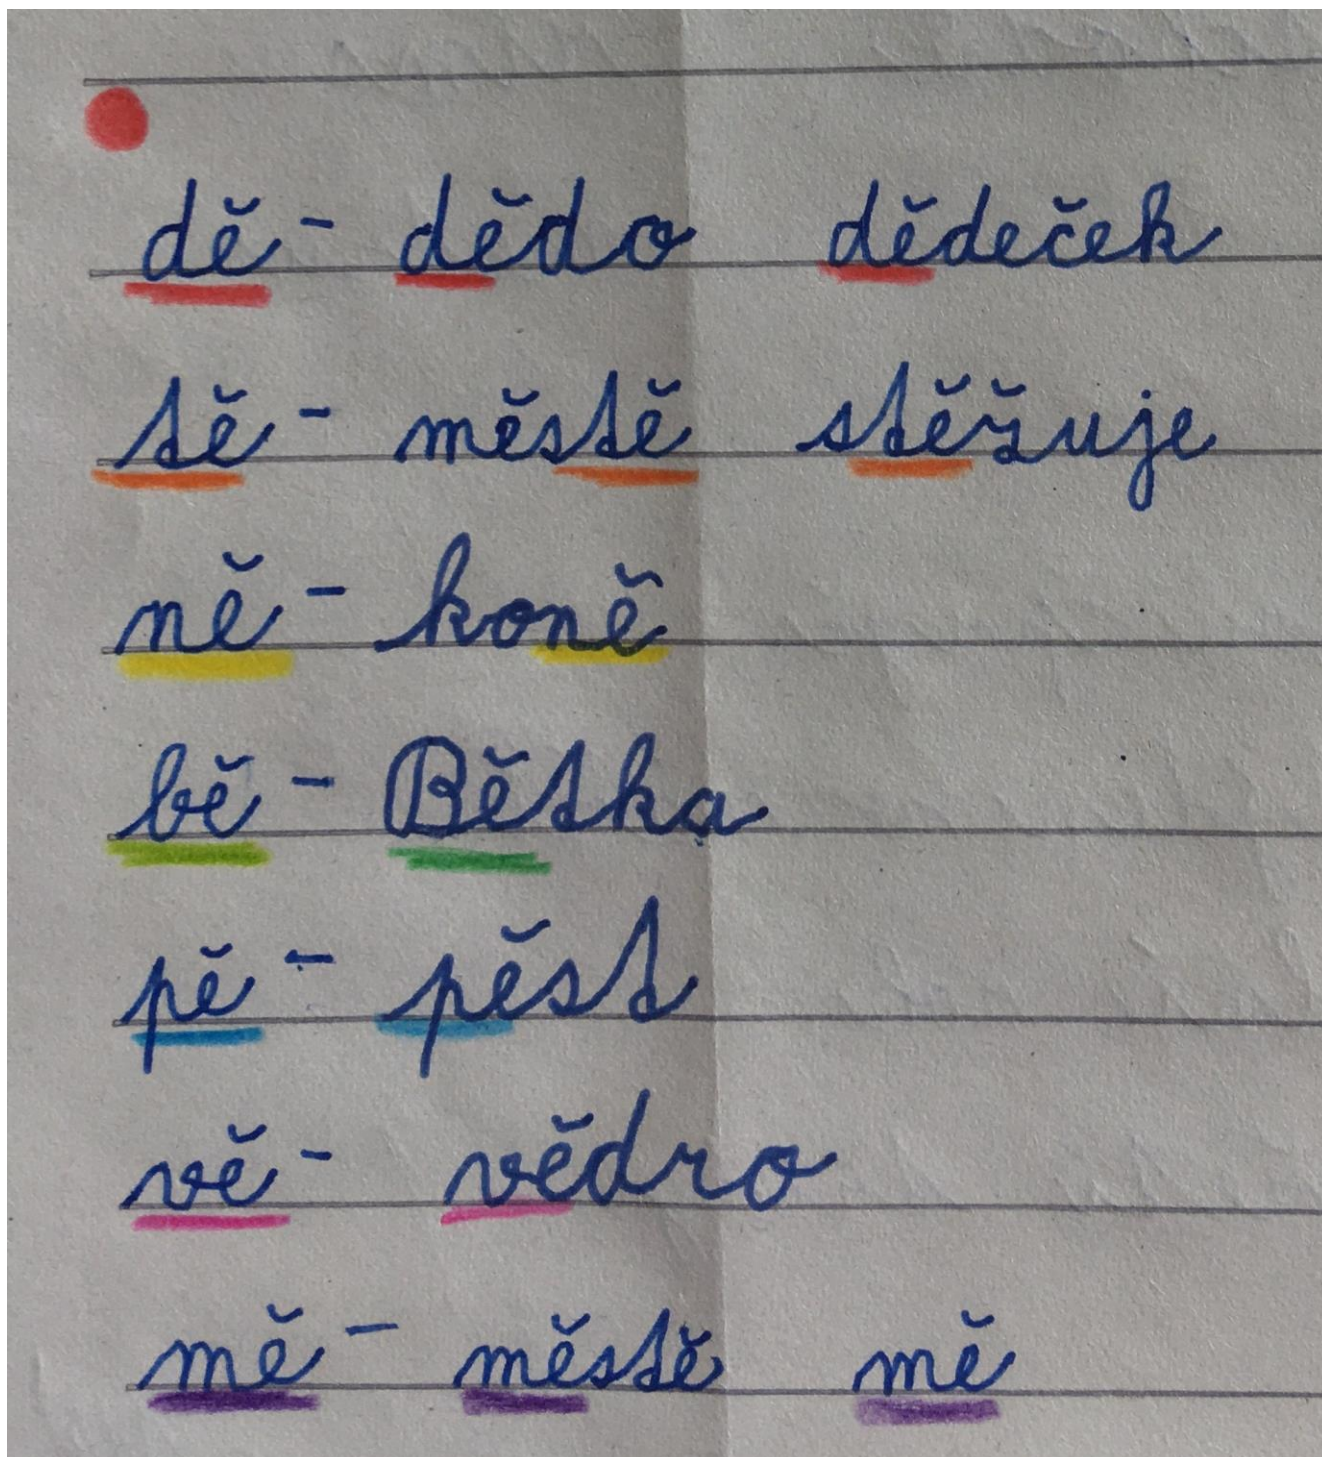 dě - dědo dědeček
tě - městě stěžuje
ně - koně
bě - Bětka
pě - pěst
vě - vědro
mě - městě mě